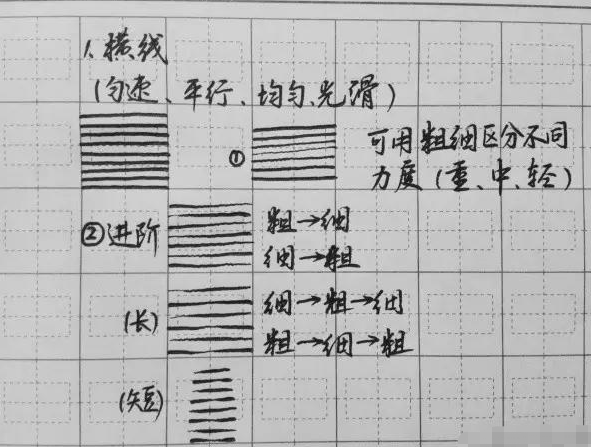 1、横线
(匀速、平行、均匀、光滑)
① 可用粗细区分不同
力度(重、中、轻)
②进阶 粗→细
细→粗
(长) 细→粗→细
粗→细→粗
(短)